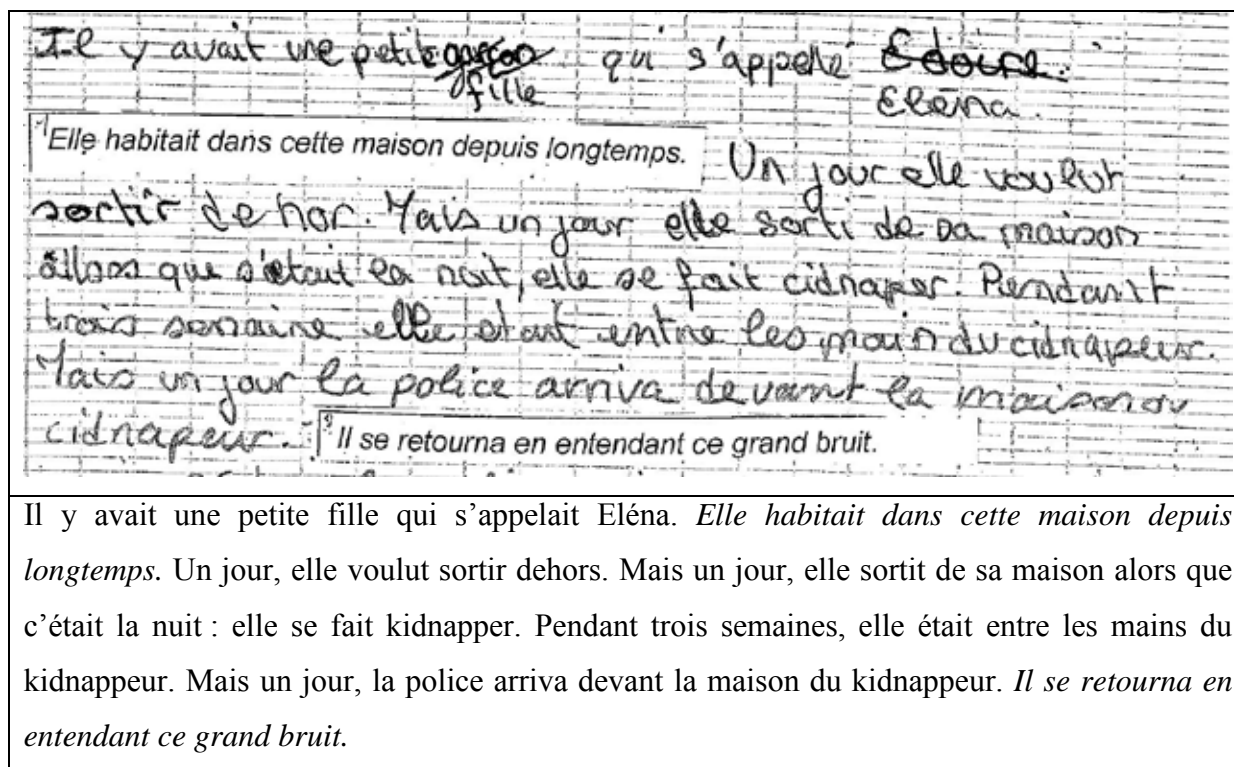 Il y avait une petite garçon qui s'appelé Edoire.
fille Eléna.
Elle habitait dans cette maison depuis longtemps. Un jour elle voulut
sortir de hor. Mais un jour elle sorti de sa maison
allors que s'etait la nuit, elle se fait cidnaper. Pendant
trois semaine elle etait entre les main du cidnapeur.
Mais un jour la police arriva devant la maison du
cidnapeur. Il se retourna en entendant ce grand bruit.
Il y avait une petite fille qui s’appelait Eléna. Elle habitait dans cette maison depuis
longtemps. Un jour, elle voulut sortir dehors. Mais un jour, elle sortit de sa maison alors que
c’était la nuit : elle se fait kidnapper. Pendant trois semaines, elle était entre les mains du
kidnappeur. Mais un jour, la police arriva devant la maison du kidnappeur. Il se retourna en
entendant ce grand bruit.